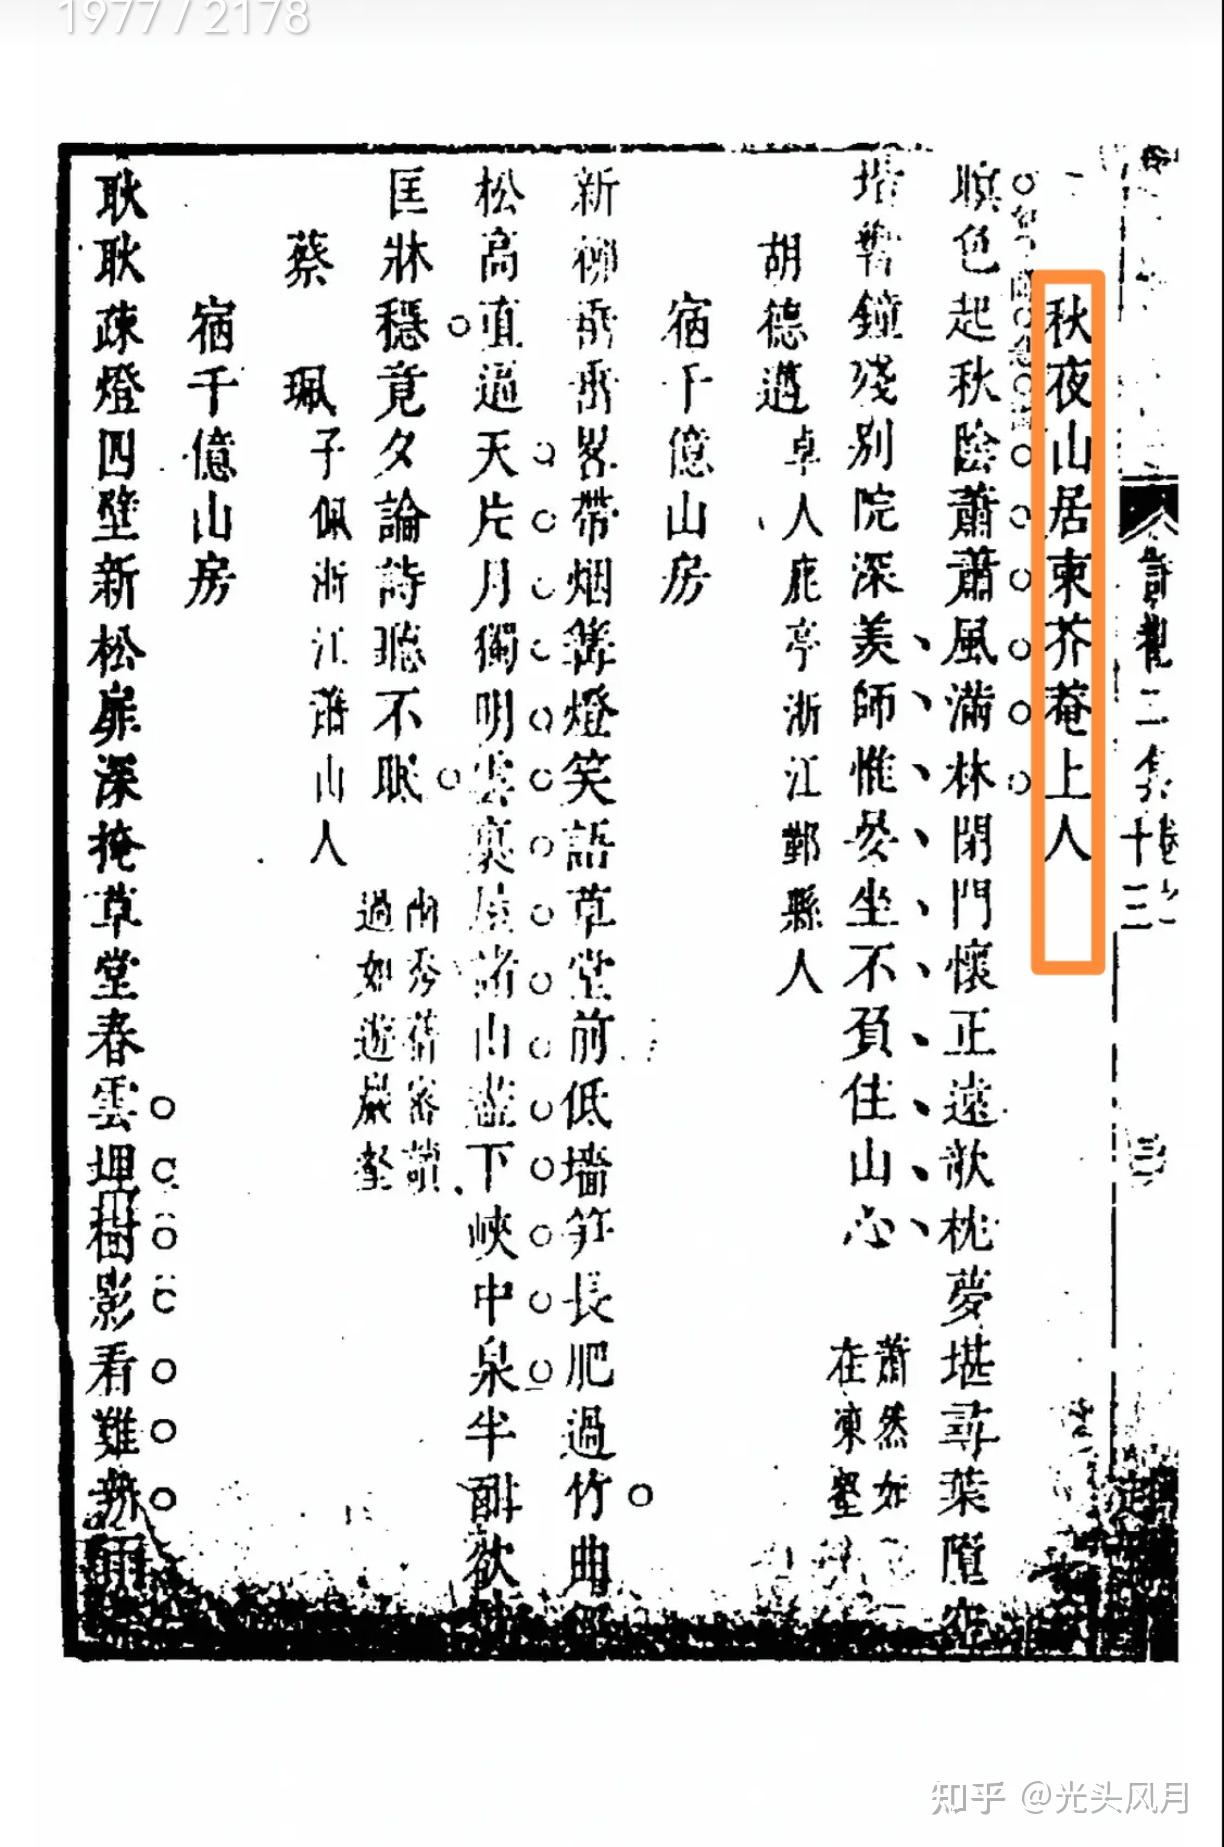 1977 / 2178
詩觀二集
十三
秋夜山居柬芥菴上人
暝色起秋陰蕭蕭風滿林閉門懷正遠欹枕夢堪尋葉墮空
堦響鐘殘別院深羨師惟晏坐不負住山心
蕭然如
在東壑
胡德邁
卓人鹿亭浙江鄞縣人
宿千億山房
新柳喬喬畧帶烟篝燈笑語草堂前低墻笋長肥過竹曲
松高直逼天片月獨明雲裏屋諸山盡下峽中泉半酣欲
匡牀穩竟夕論詩聽不眠
幽秀蒨密讀
過如遊巖壑
蔡珮
子佩浙江蕭山人
宿千億山房
耿耿疎燈四壁新松扉深掩草堂春雲埋樹影看難
知乎 @光头风月